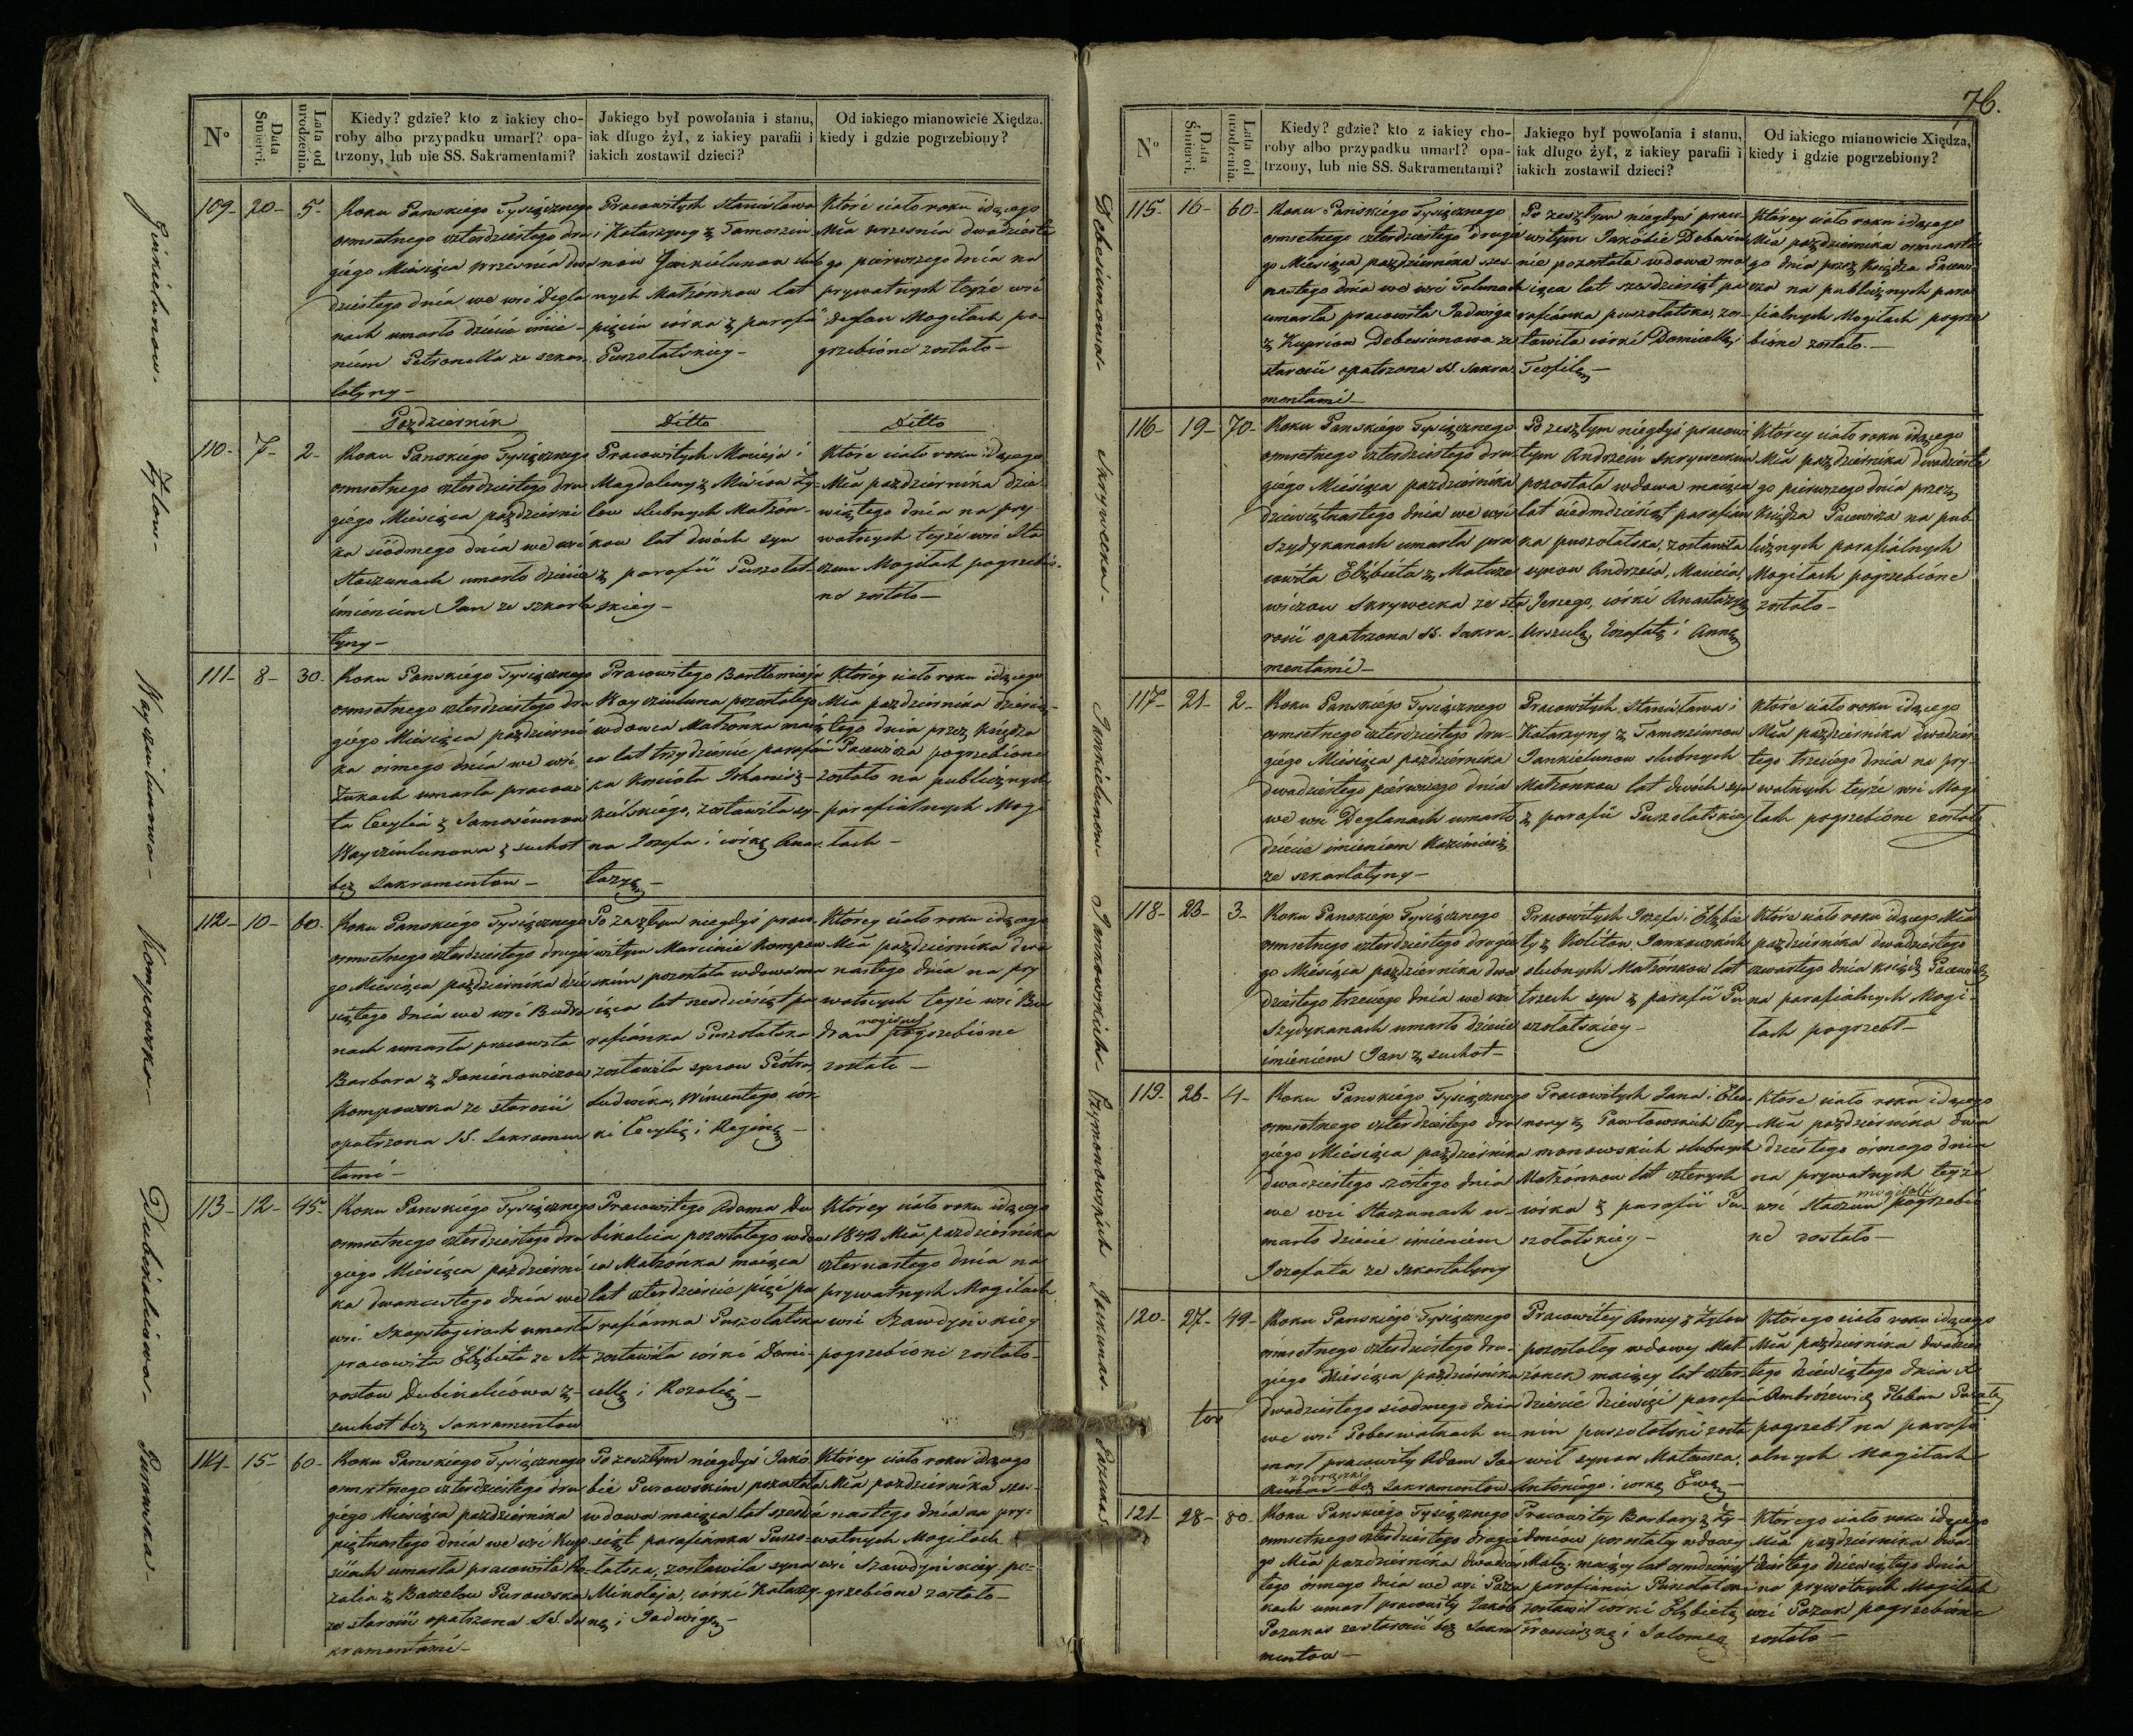 76.
Nº
Data Śmierci.
Lata od urodzenia.
Kiedy? gdzie? kto z iakiey cho-
roby albo przypadku umarł? opa-
trzony, lub nie SS. Sakramentami?
Jakiego był powołania i stanu,
iak długo żył, z iakiey parafii i
iakich zostawił dzieci?
Od iakiego mianowicie Xiędza,
kiedy i gdzie pogrzebiony?
109- 20- 5-
Roku Panskiego Tysiącznego
osmsetnego czterdziestego dru-
giego Miesiąca wrzesnia dwa
dziestego dnia we wsi Degla
nach umarło dziécie imie-
niem Petronella ze szkar-
latyny-
Pracowitych Stanisława
i Katarzyny z Tamosziu
now Jankielunow slub
nych Małżonkow lat
pięciu córka z parafii
Puszołatskiey-
Które ciało roku idącego
Mca wrzesnia dwadzieste
go pierwszego dnia na
prywatnych teyże wsi
Deglan Mogiłach po-
grzebione zostało-
Pazdziernik
Ditto
Ditto
110- 7- 2-
Roku Panskiego Tysiącznego
osmsetnego czterdziestego dru
giego Miesiąca pazdzierni
ka siódmego dnia we wsi
Staczunach umarło dziécie
imieniem Jan ze szkarla
tyny-
Pracowitych Macieja i
Magdaleny z Ży-
low slubnych Małżon-
kow lat dwóch syn
z parafii Puszołat-
skiey-
Które ciało roku idącego
Mca pazdziernika dzie
wiątego dnia na pry-
watnych teyże wsi Sta
czun Mogiłach pogrzebio-
ne zostało-
111- 8- 30-
Roku Panskiego Tysiącznego
osmsetnego czterdziestego dru
giego Miesiąca pazdzierni
ka osmego dnia we wsi
Żukach umarła pracowi
ta Cecylia z Samosiunow
Wayszwilunowa z suchot
bez Sakramentow-
Pracowitego Bartłomieja
Wayszwiluna pozostałego
wdowca Małżonka maią
ca lat trzydziescie parafian
ka Koscioła
zostawiła sy-
na Jozefa i córkę Anas
tazyę-
Którey ciało roku idącego
Mca pazdziernika dziesią-
tego dnia przez Księdza
Pacewicza pogrzebione
zostało na publicznych
parafialnych Mogi
łach-
112- 10- 60-
Roku Panskiego Tysiącznego
osmsetnego czterdziestego drugie
go Miesiąca pazdziernika dzie
siątego dnia we wsi Budra
nach umarła pracowita
Barbara z Danienowiczow
Kompowska ze starosci
opatrzona SS. Sakramen
tami-
Po zeszłym niegdyś praco
witym Marcinie Kompow
skim pozostała wdowa ma
iąca lat szesdziesiąt pa
rafianka Puszołatska
zostawiła synow Piotra,
Ludwika, Wincentego cór
ki Cecylię i Reginę-
Którey ciało roku idącego
Mca pazdziernika dwa
nastego dnia na pry
watnych teyże wsi Bu
dran mogiłach pogrzebione
zostało-
113- 12- 45-
Roku Panskiego Tysiącznego
osmsetnego czterdziestego dru
giego Miesiąca pazdzierni
ka dwunastego dnia we
wsi umarła
pracowita Elżbieta ze Sta
rostow Dubikalciowa z
suchot bez Sakramentow
Pracowitego Adama Du
bikalcia pozostałego wdow
ca Małżonka maiąca
lat czterdziescie pięć pa
rafianka Puszołatska
zostawiła córki Domi-
cellę i Rozalię-
Którey ciało roku idącego
1842 Mca pazdziernika
czternastego dnia na
prywatnych Mogiłach
wsi Szawdyńskiey
pogrzebione zostało-
114- 15- 60-
Roku Panskiego Tysiącznego
osmsetnego czterdziestego dru
giego Miesiąca pazdziernika
piętnastego dnia we wsi Kup-
sciach umarła pracowita Ro-
zalia z Baczelow Purowska
ze starosci opatrzona SS. Sa
kramentami-
Po zeszłym niegdyś Jakó
bie Purowskim pozostała
wdowa maiąca lat szesdzie
siąt parafianka Puszo-
latska, zostawiła syna
Mikołaja, córki Katarzy
nę i Jadwigę-
Którey ciało roku idącego
Mca pazdziernika szes-
nastego dnia na pry-
watnych Mogiłach
wsi Szawdyńskiey po-
grzebione zostało-
Jankielunow- Żylow- Wayszwilunowa- Kompowska- Dubikalciowa- Purowska-
Nº
Data Śmierci.
Lata od urodzenia.
Kiedy? gdzie? kto z iakiey cho-
roby albo przypadku umarł? opa-
trzony, lub nie SS. Sakramentami?
Jakiego był powołania i stanu,
iak długo żył, z iakiey parafii i
iakich zostawił dzieci?
Od iakiego mianowicie Xiędza,
kiedy i gdzie pogrzebiony?
115- 16- 60-
Roku Panskiego Tysiącznego
osmsetnego czterdziestego drugie
go Miesiąca pazdziernika szes-
nastego dnia we wsi Tolunach
umarła pracowita Jadwiga
z Kuprion Debesiunowa ze
starosci opatrzona SS. Sakra
mentami-
Po zeszłym niegdyś praco
witym Jakóbie Debesiu
nie pozostała wdowa ma
iąca lat szesdziesiąt pa
rafianka puszołatska, zos-
tawiła córki Domicellę i
Teofilę-
Którey ciało roku idącego
Mca pazdziernika osmnaste
go dnia przez Księdza Pacewi-
cza na publicznych para
fialnych Mogiłach pogrze
bione zostało.-
116- 19- 70-
Roku Panskiego Tysiącznego
osmsetnego czterdziestego dru
giego Miesiąca pazdziernika
dziewiętnastego dnia we wsi
Szydykanach umarła pra
cowita Elżbieta z Matuze
wiczow Skrywecka ze sta
rosci opatrzona SS. Sakra-
mentami-
Po zeszłym niegdyś pracowi
tym Andrzeiu Skryweckim
pozostała wdowa maiąca
lat siedmdziesiąt parafian
ka puszołatska, zostawiła
synow Andrzeia, Macieia
Jerzego, córki Anastazyę
Urszulę, Jozefatę i Annę
Którey ciało roku idącego
Mca pazdziernika dwudzieste
go pierwszego dnia przez
Księdza Pacewicza na pub-
licznych parafialnych
Mogiłach pogrzebione
zostało-
117- 21- 2-
Roku Panskiego Tysiącznego
osmsetnego czterdziestego dru-
giego Miesiąca pazdziernika
dwadziestego pierwszego dnia
we wsi Deglanach umarło
dziécie imieniem Kazimierz
ze szkarlatyny-
Pracowitych Stanisława i
Katarzyny z Tamosziunow
Jankielunow slubnych
Małżonkow lat dwóch syn
z parafii Puszołatskiey
Które ciało roku idącego
Mca pazdziernika dwadzies-
tego trzeciego dnia na pry-
watnych teyże wsi Mogi
łach pogrzebione zostało
118- 23- 3-
Roku Panskiego Tysiącznego
osmsetnego czterdziestego drugie
go Miesiąca pazdziernika dwa
dziestego trzeciego dnia we wsi
Szydykanach umarło dziécie
imieniem Jan z suchot-
Pracowitych Jozefa i Elżbie
ty z Kolitow Jankowskich
slubnych Małżonkow lat
trzech syn z parafii Pu-
szołatskiey-
Które ciało roku idącego Mca
pazdziernika dwadziestego
czwartego dnia ksiądz Pacewicz
na parafialnych Mogi-
łach pogrzebł-
119- 26- 4-
Roku Panskiego Tysiącznego
osmsetnego czterdziestego dru
giego Miesiąca pazdziernika
dwadziestego szóstego dnia
we wsi Staczunach u-
marło dziecie imieniem
Jozefata ze szkarlatyny
Pracowitych Jana i Eleo-
nory z Pawłowskich Czy-
monowskich slubnych
Małżonkow lat czterych
córka z parafii Pu-
szołatskiey-
Które ciało roku idącego
Mca pazdziernika dwa
dziestego ósmego dnia
na prywatnych teyże
wsi Staczun mogiłach pogrzebio
ne zostało-
120- 27- 49-
Roku Panskiego Tysiącznego
osmsetnego czterdziestego dru-
giego Miesiąca pazdziernika
dwadziestego siodmego dnia
we wsi Poberwałkach u-
marł pracowity Adam Ja-
kunas z gorączki bez Sakramentow
Pracowitey Anny z Żylow
pozostałey wdowy Mał-
żonek maiący lat czter-
dziescie dziewięć parafia-
nin puszołatski zosta
wił synow Mateusza,
Antoniego i córkę Ewę-
Którego ciało roku idącego
Mca pazdziernika dwadzies
tego dziewiątego dnia X
Ambrożewicz Pleban
pogrzebł na parafi
alnych Mogiłach
121- 28- 80-
Roku Panskiego Tysiącznego
osmsetnego czterdziestego drugie
go Mca pazdziernika dwadzies
tego ósmego dnia we wsi Poża
kach umarł pracowity Jakób
Pozanas ze starosci bez Sakra
mentow-
Pracowitey Barbary z
pozostałey wdowy
Małż: maiący lat osmdziesiąt
parafianin Puszołatski
zostawił córki Elżbietę
Franciszkę i Salomeę
Którego ciało roku idącego
Mca pazdziernika dwa-
dziestego dziewiątego dnia
na prywatnych Mogiłach
wsi Pożak pogrzebione
zostało-
Debesiunowa Skrywecka- Jankielunow- Jankowskich Czymonowskich Jakunas-